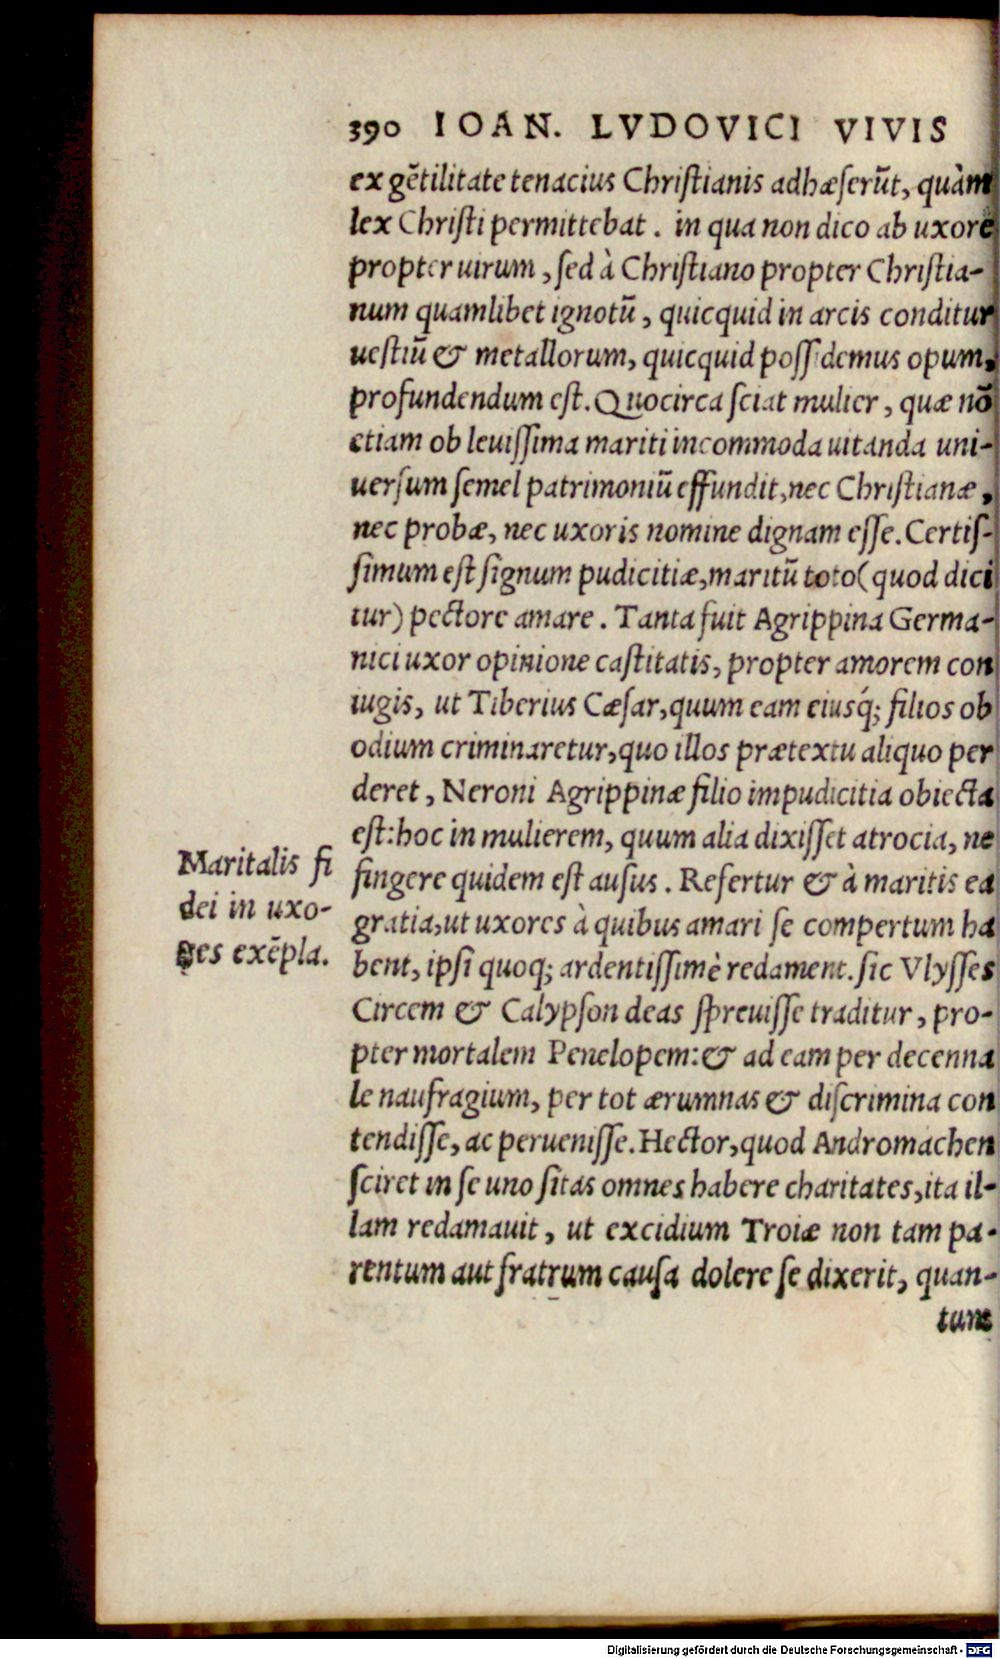 390 IOAN. LVDOVICI VIVIS
ex gẽtilitate tenacius Chriſtianis adhæſerũt, quàm
lex Chriſti permittebat. in qua non dico ab uxorẽ
propter uirum, ſed à Chriſtiano propter Chriſtia-
num quamlibet ignotũ, quicquid in arcis conditur
ueſtiũ & metallorum, quicquid poſſidemus opum,
profundendum eſt. Quocirca ſciat mulier, quæ nõ
etiam ob leuiſſima mariti incommoda uitanda uni-
uerſum ſemel patrimoniũ effundit, nec Chriſtianæ,
nec probæ, nec uxoris nomine dignam eſſe. Certiſ-
ſimum eſt ſignum pudicitiæ, maritũ toto (quod dici
tur) pectore amare. Tanta fuit Agrippina Germa-
nici uxor opinione caſtitatis, propter amorem con
iugis, ut Tiberius Cæſar, quum eam eiusq́; filios ob
odium criminaretur, quo illos prætextu aliquo per
deret, Neroni Agrippinæ filio impudicitia obiecta
eſt: hoc in mulierem, quum alia dixiſſet atrocia, ne
fingere quidem eſt auſus. Refertur & à maritis ea
gratia, ut uxores à quibus amari ſe compertum ha
bent, ipſi quoq; ardentiſſimè redament. ſic Vlyſſes
Circem & Calypſon deas ſpreuiſſe traditur, pro-
pter mortalem Penelopem: & ad eam per decenna
le naufragium, per tot ærumnas & diſcrimina con
tendiſſe, ac perueniſſe. Hector, quod Andromachen
ſciret in ſe uno ſitas omnes habere charitates, ita il-
lam redamauit, ut excidium Troiæ non tam pa-
rentum aut fratrum cauſa dolere ſe dixerit, quan-
tum
Maritalis fi
dei in uxo-
res exẽpla.
Digitalisierung gefördert durch die Deutsche Forschungsgemeinschaft - DFG